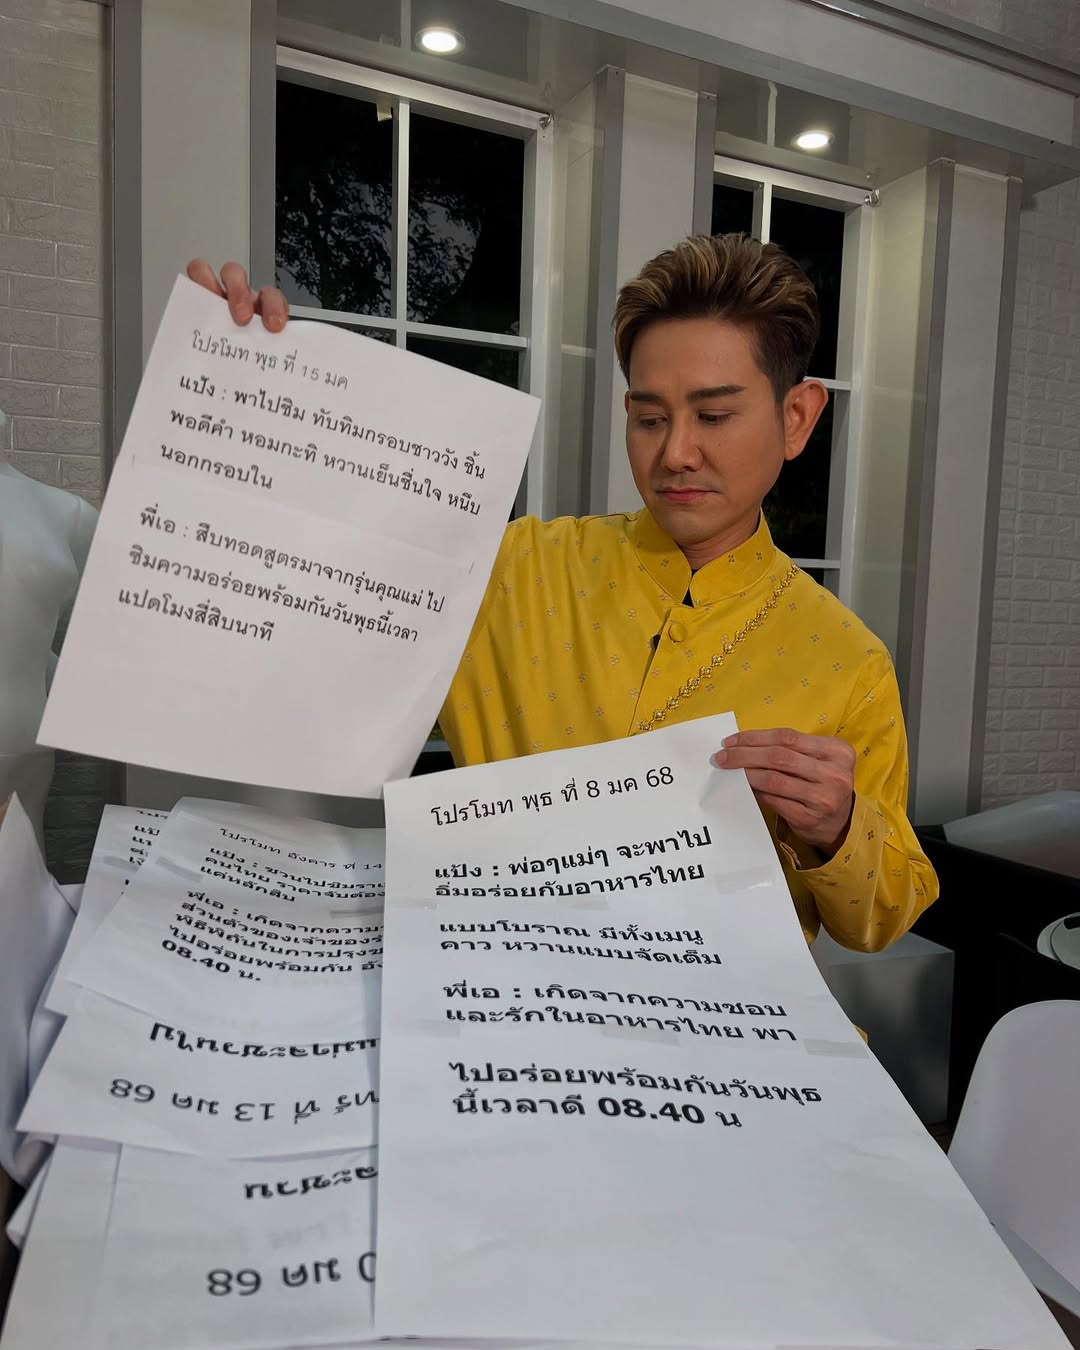 โปรโมท พุธ ที่ 15 มค
แป้ง : พาไปชิม ทับทิมกรอบชาววัง ชิ้น
พอดีคำ หอมกะทิ หวานเย็นชื่นใจ หนึบ
นอกกรอบใน
พี่เอ : สืบทอดสูตรมาจากรุ่นคุณแม่ ไป
ชิมความอร่อยพร้อมกันวันพุธนี้เวลา
แปดโมงสี่สิบนาที
โปรโมท พุธ ที่ 8 มค 68
แป้ง : พ่อๆแม่ๆ จะพาไป
อิ่มอร่อยกับอาหารไทย
แบบโบราณ มีทั้งเมนู
คาว หวานแบบจัดเต็ม
พี่เอ : เกิดจากความชอบ
และรักในอาหารไทย พา
ไปอร่อยพร้อมกันวันพุธ
นี้เวลาดี 08.40 น
โปรโมท อังคาร ที่ 14
แป้ง : ชวนไปชิมรา
คนไทย ราคาจับต้อง
แค่หลักสิบ
พี่เอ : เกิดจากความ
ส่วนตัวของเจ้าของร้
พิถีพิถันในการปรุง
ไปอร่อยพร้อมกัน อัง
08.40 น.
แม่ๆจะชวนไป
ทร์ ที่ 13 มค 68
จะชวน
มค 68